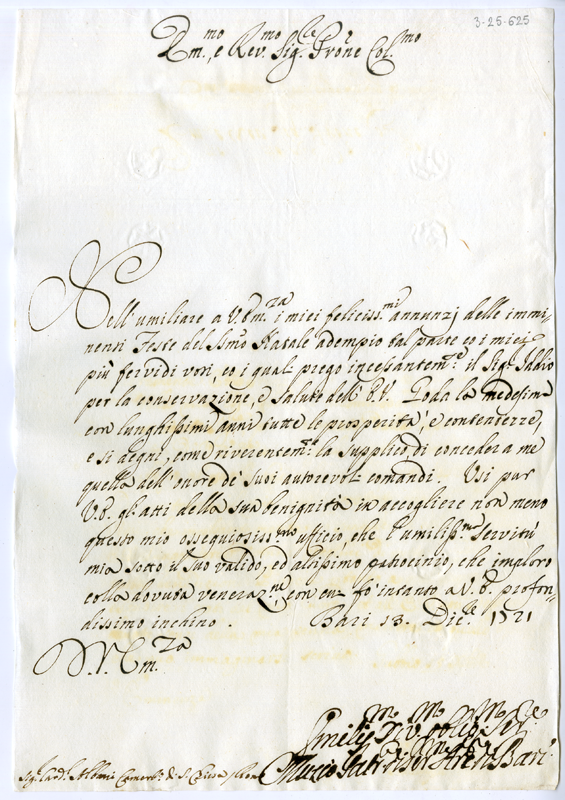 3-25-625
Em.mo e Rev.mo Sig.re Prone Col.mo
Nell'umiliare a V. Em.za i miei feliciss.mi annunzj delle immi-
nenti Feste del Smo Natale adempio tal parte co i miei
più fervidi voti, co i quali prego incessantem.te il Sig.r Iddio
per la conservazione, e salute dell'E.V. Goda la medesima
con lunghissimi anni tutte le prosperità, e contentezze,
e si degni, come riverentem.te la supplico, di conceder a me
quella dell'onore de' suoi autorevoli comandi. Usi pur
V.E. gli atti della sua benignità in accogliere non meno
questo mio ossequiosiss.mo ufficio, che l'umiliss.ma servitù
mia sotto il suo valido, ed altissimo patrocinio, che imploro
colla dovuta veneraz.ne, con cui fò intanto a V.E. profon-
dissimo inchino. Bari 13. Dic.e 1721
D.V. Em.za
Umiliss.mo Div.mo obblig.mo Ser.re
Muzio Arciv. di Bari
Sig. Card. Albani Camerl. di S. Chiesa